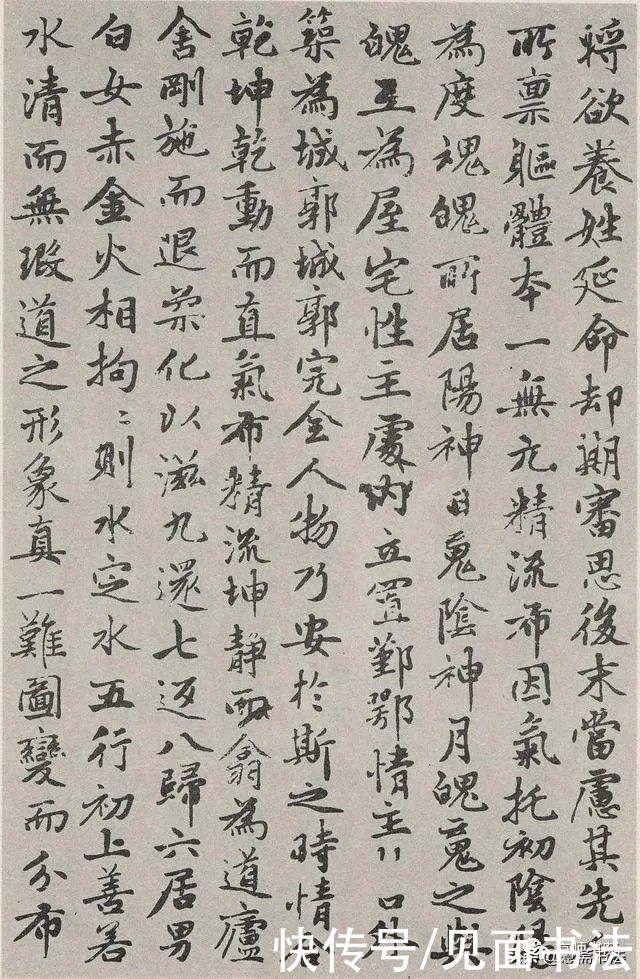 將欲養姓延命却期審思後末當慮其先
所禀軀體本一無元精流布因氣托初陰
為度魂魄所居陽神日鬼陰神月魄䰟之與
魄互為屋宅性主處内立置鄞鄂情主〻口外
築為城郭城郭完全人物乃安於斯之時情
乾坤乾動而直氣布精流坤静而翕為道廬
舍剛施而退柔化以滋九還七返八歸六居男
白女赤金火相拘〻則水定水五行初上善若
水清而無瑕道之形象真一難圖變而分布
快传号/见面书法